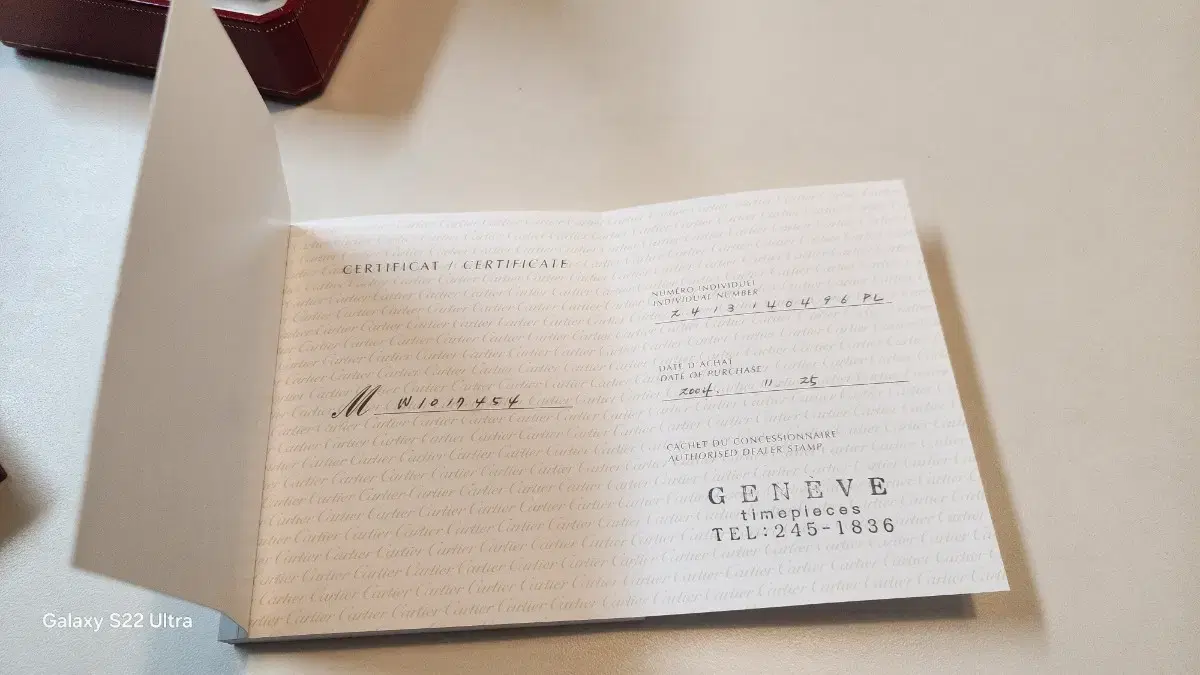 CERTIFICAT / CERTIFICATE
M W1017454
NUMÉRO INDIVIDUEL
INDIVIDUAL NUMBER
2413140496 PL
DATE D'ACHAT
DATE OF PURCHASE
2004. 11 25
CACHET DU CONCESSIONNAIRE
AUTHORISED DEALER STAMP
GENÈVE
timepieces
TEL:245-1836
Cartier
Galaxy S22 Ultra